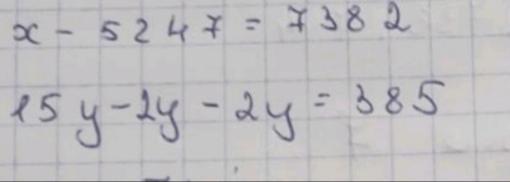 x - 5247 = 7382
15y - 2y - 2y = 385